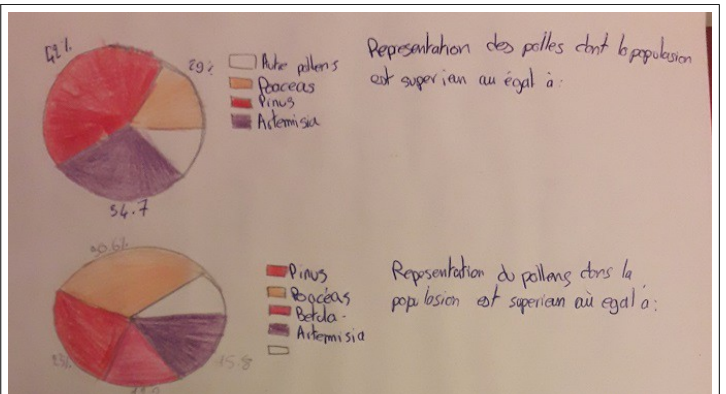 42%
29%
Autre pollens
Poaceas
Pinus
Artemisia
34.7
Representation des polles dont la populasion
est superieur au égal à:
30.6%
Pinus
Poacéas
Betula
Artemisia
23%
15.8
Representation du pollens dons la
populasion est superieur au egal à: